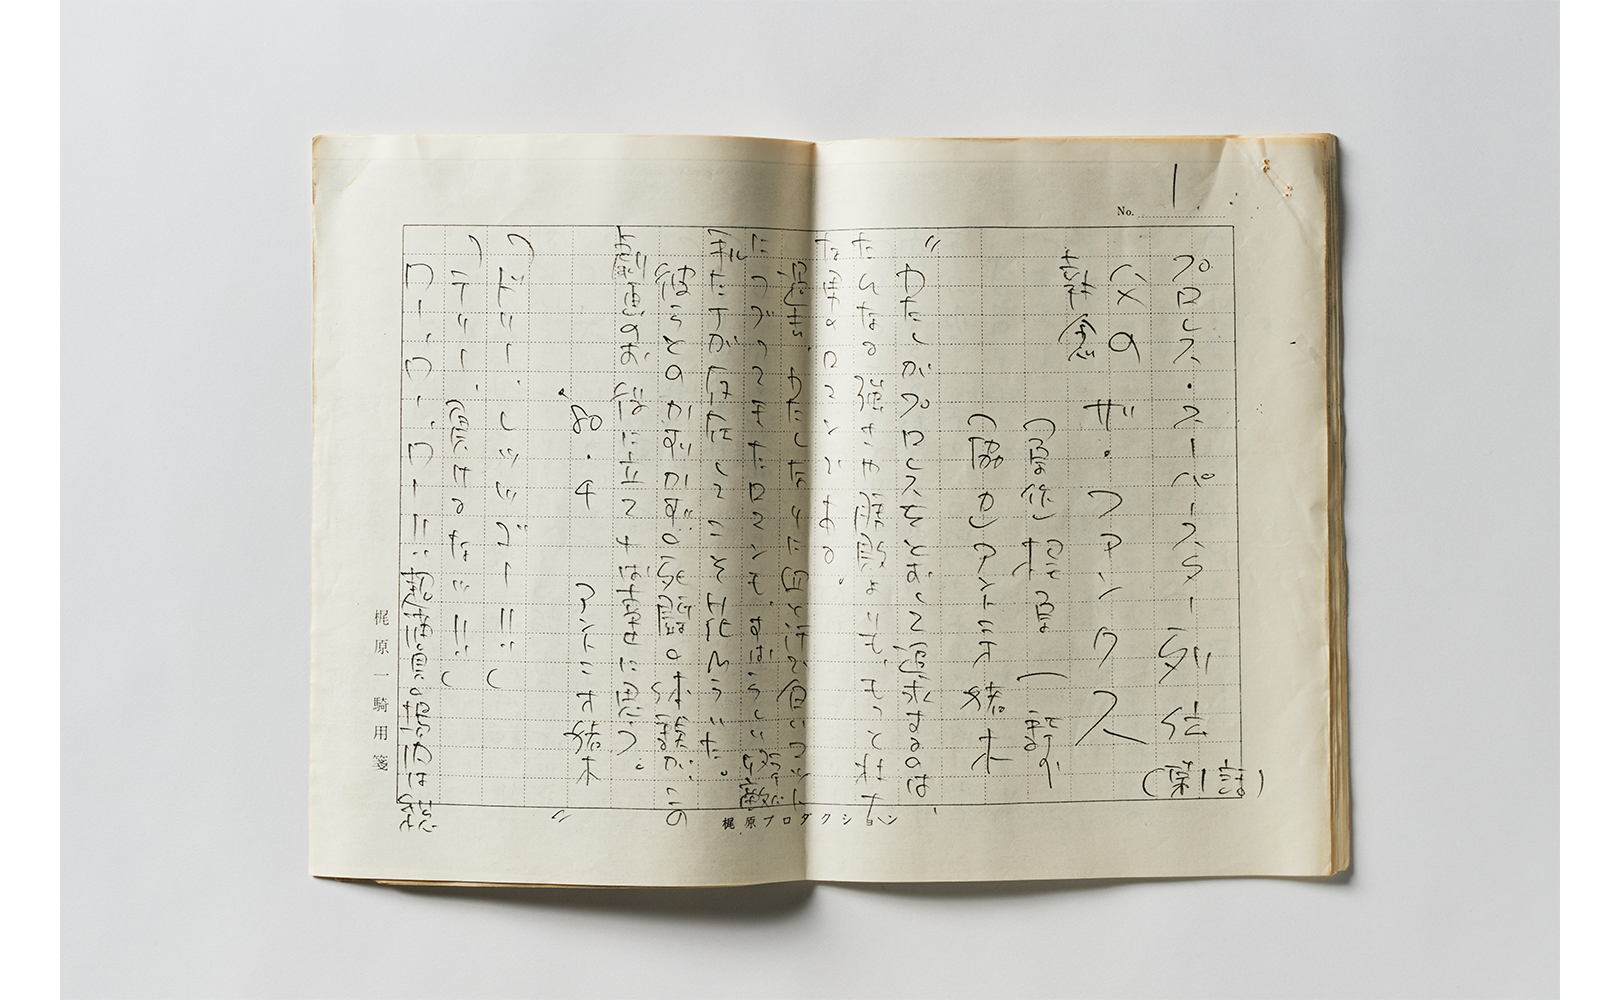 No. 1
プロレス・スーパースター列伝
(第1話)
父の
執念
ザ・ファンクス
(原作)梶原一騎
(協力)アントニオ猪木
〝わたしがプロレスをとおして追求するのは、
たんなる強さや勝敗よりも、もっと壮大
な男のロマンである。
過去、わたしなりに血と汗で食いつット
につづってきたロマンも、すばらしい好敵
手たちが存在してこそ花ひらいた。
彼らとのかずかずの死闘の体験が、この
劇画のお役に立てれば幸せに思う。
'80・4
アントニオ猪木〟
(ドリー、レッツゴー!!)
(テリー、負けるなッ!!)
ワー、ワー、ワー!!
梶原一騎用箋
梶原プロダクション